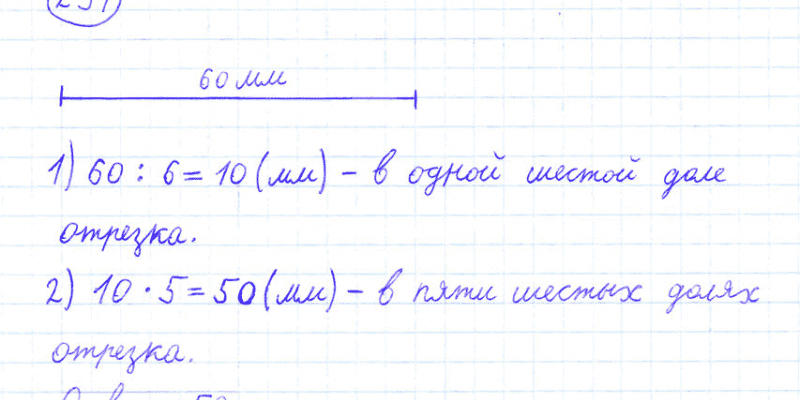 60 мм
1) 60 : 6 = 10 (мм) – в одной шестой доле
отрезка.
2) 10 · 5 = 50 (мм) – в пяти шестых долях
отрезка.